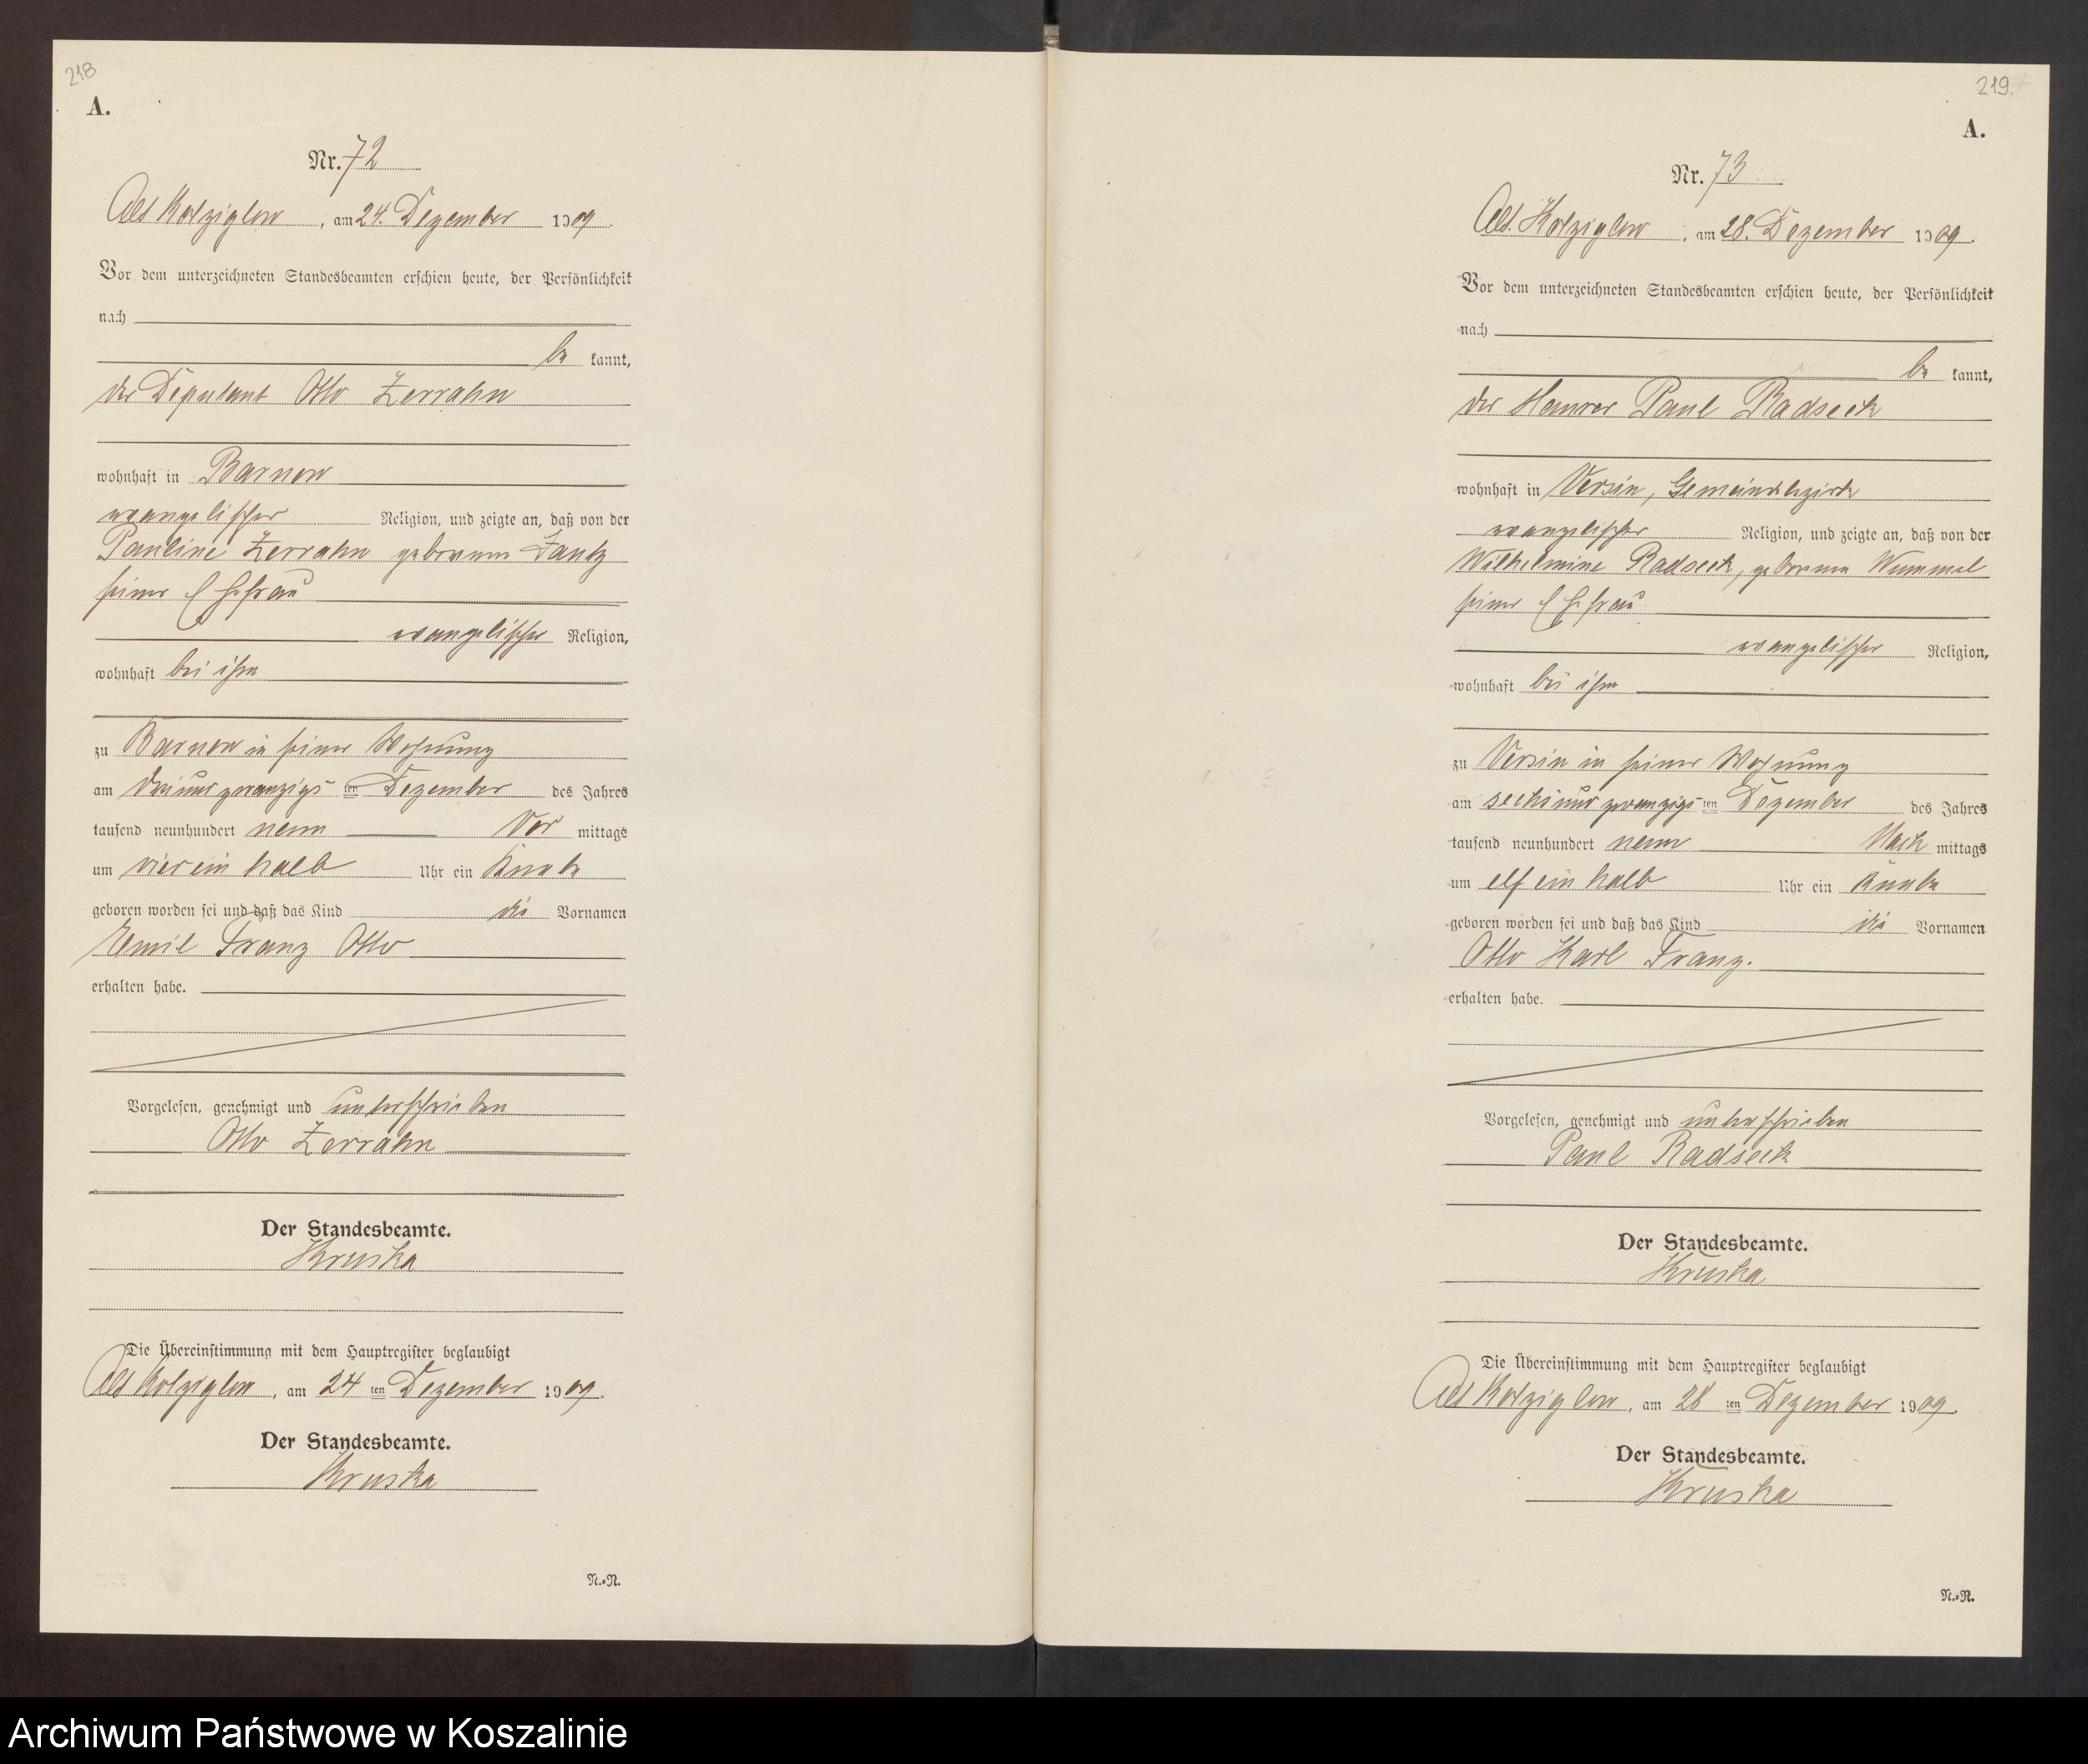 218
A.
Nr. 72
Alt Kolziglow, am 24. Dezember 1909.
Vor dem unterzeichneten Standesbeamten erschien heute, der Persönlichkeit
nach
be kannt,
der Deputant Otto Zerrahn
wohnhaft in Barnow
evangelischer Religion, und zeigte an, daß von der
Pauline Zerrahn geborenen Jantz
seiner Ehefrau
evangelischer Religion,
wohnhaft bei ihm
zu Barnow in seiner Wohnung
am dreiundzwanzigs ten Dezember des Jahres
tausend neunhundert neun Vor mittags
um vier ein halb Uhr ein Knabe
geboren worden sei und daß das Kind die Vornamen
Emil Franz Otto
erhalten habe.
Vorgelesen, genehmigt und unterschrieben
Otto Zerrahn
Der Standesbeamte.
Kruska
Die Übereinstimmung mit dem Hauptregister beglaubigt
Alt Kolziglow, am 24 ten Dezember 1909.
Der Standesbeamte.
Kruska
N.=N.
219.
A.
Nr. 73
Alt. Kolziglow, am 28. Dezember 1909.
Vor dem unterzeichneten Standesbeamten erschien heute, der Persönlichkeit
nach
be kannt,
der Maurer Paul Radseck
wohnhaft in Versin, Gemeindebezirk
evangelischer Religion, und zeigte an, daß von der
Wilhelmine Radseck, geborenen Wummel
seiner Ehefrau
evangelischer Religion,
wohnhaft bei ihm
zu Versin in seiner Wohnung
am sechsundzwanzigs ten Dezember des Jahres
tausend neunhundert neun Nach mittags
um elf ein halb Uhr ein Knabe
geboren worden sei und daß das Kind die Vornamen
Otto Karl Franz.
erhalten habe.
Vorgelesen, genehmigt und unterschrieben
Paul Radseck
Der Standesbeamte.
Kruska
Die Übereinstimmung mit dem Hauptregister beglaubigt
Alt Kolziglow, am 28 ten Dezember 1909.
Der Standesbeamte.
Kruska
N.=N.
Archiwum Państwowe w Koszalinie